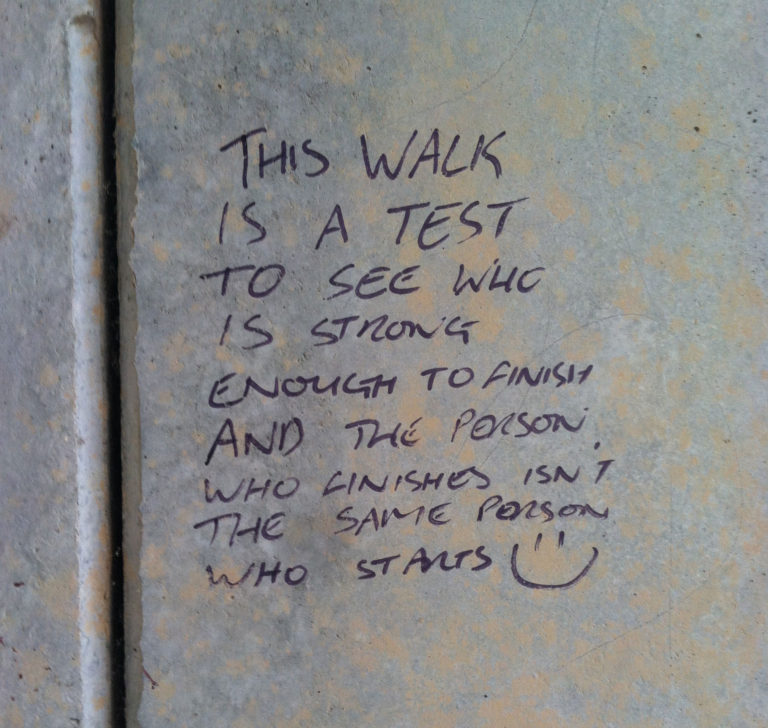 THIS WALK
IS A TEST
TO SEE WHO
IS STRONG
ENOUGH TO FINISH
AND THE PERSON
WHO FINISHES ISN'T
THE SAME PERSON
WHO STARTS